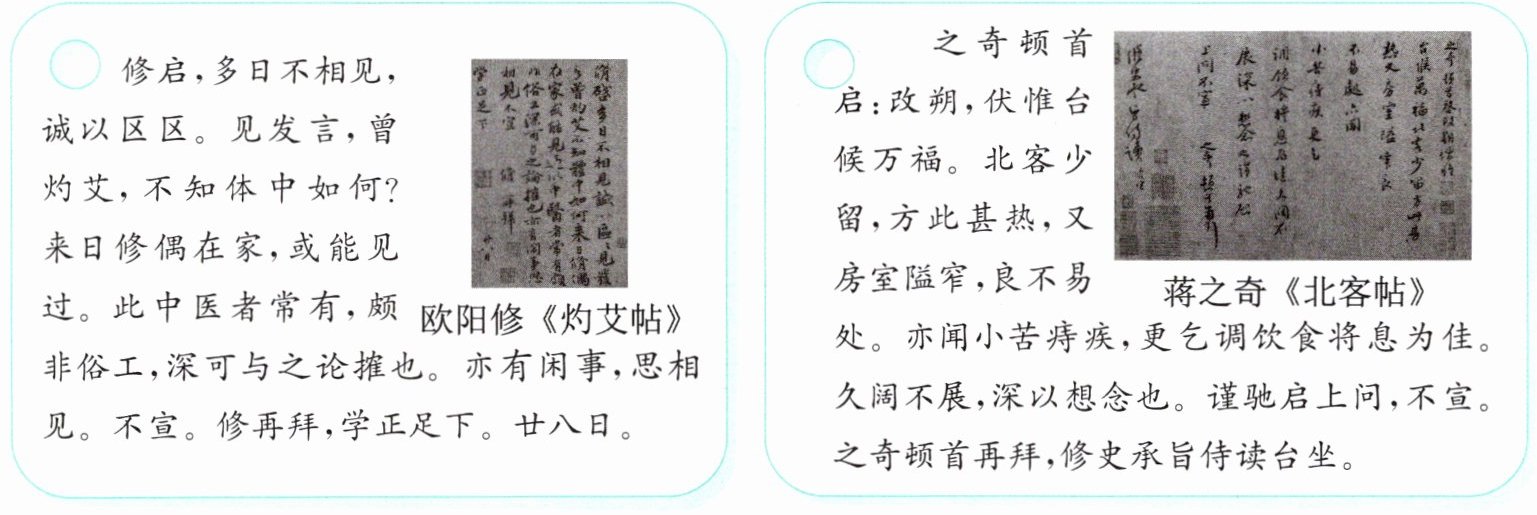 修启，多日不相见，
诚以区区。见发言，曾
灼艾，不知体中如何？
来日修偶在家，或能见
过。此中医者常有，颇
非俗工，深可与之论搉也。亦有闲事，思相
见。不宣。修再拜，学正足下。廿八日。
欧阳修《灼艾帖》
之奇顿首
启：改朔，伏惟台
候万福。北客少
留，方此甚热，又
房室隘窄，良不易
处。亦闻小苦痔疾，更乞调饮食将息为佳。
久阔不展，深以想念也。谨驰启上问，不宣。
之奇顿首再拜，修史承旨侍读台坐。
蒋之奇《北客帖》